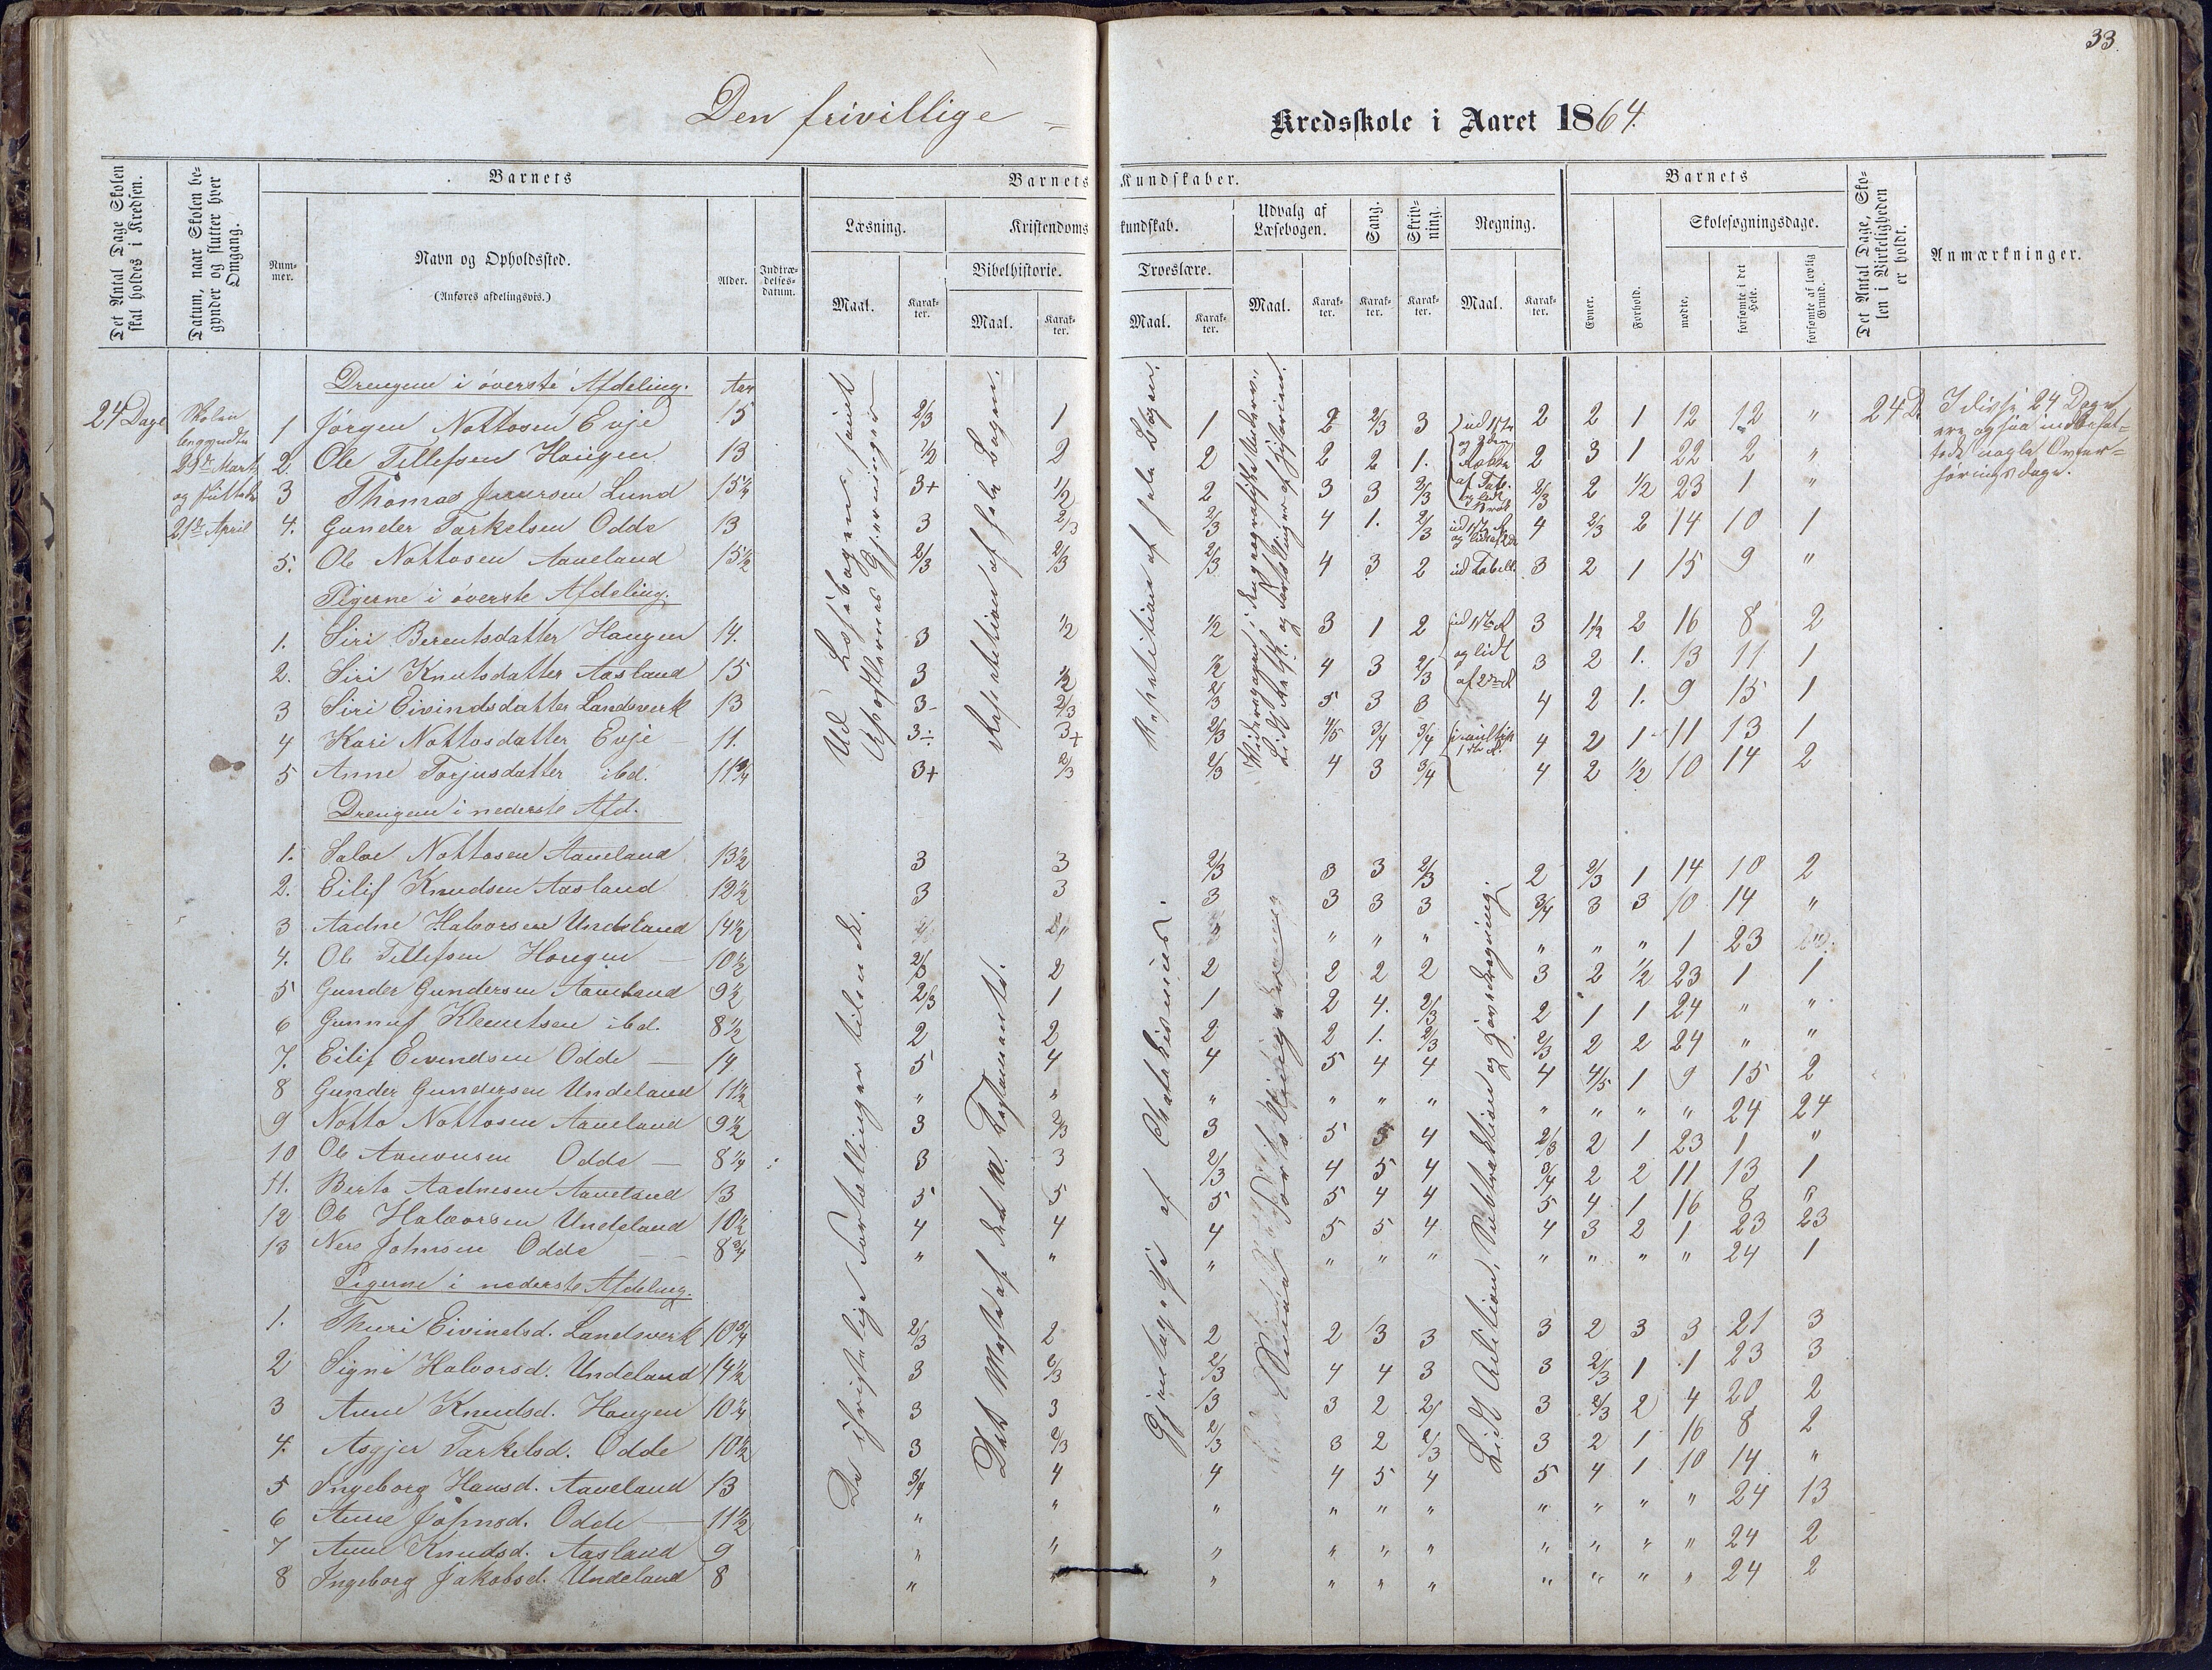 33.
Den frivillige - Kredsskole i Aaret 1864.
Det Antal Dage Skolen skal holdes i Kredsen.
Datum, naar Skolen begynder og slutter hver Omgang.
Barnets
Nummer.
Navn og Opholdssted.
(Anføres afdelingsvis.)
Alder.
Indtrædelsesdatum.
Barnets Kundskaber.
Læsning.
Maal.
Karakter.
Kristendomskundskab.
Bibelhistorie.
Maal.
Karakter.
Troeslære.
Maal.
Karakter.
Udvalg af Læsebogen.
Maal.
Karakter.
Sang.
Karakter.
Skrivning.
Karakter.
Regning.
Maal.
Karakter.
Barnets
Evner.
Forhold.
Skolesøgningsdage.
mødte.
forsømte i det Hele.
forsømte af lovlig Grund.
Det Antal Dage, Skolen i Virkeligheden er holdt.
Anmærkninger.
24 Dage
Skolen begyndte 29de Marts og sluttede 21de April
Drengene i øverste Afdeling. Aar
1 Jørgen Nottosen Evje 15 2/3 1 1 2 2/3 3 2 2 1 12 12 " 24 D.
2. Ole Tellefsen Haugen 13 1/2 2 2 2 2 1. 2 3 1 22 2 "
3 Thomas Lund 15 1/4 3+ 1/2 2 3 3 2/3 2/3 2 1/2 23 1 "
4. Gunder Tarkelsen Odde 13 3 2/3 2/3 4 1. 2/3 4 2/3 2 14 10 1
5. Ole Nottosen Aaneland 15 1/2 2/3 2/3 2/3 4 3 2 3 2 1 15 9 "
Pigerne i øverste Afdeling.
1. Siri Berentsdatter Haugen 14. 3 1/2 1/2 3 1 2 3 1 1/2 2 16 8 2
2. Siri Knutsdatter Aasland 15 3 1/2 1/2 4 3 2/3 3 2 1. 13 11 1
3 Siri Eivindsdatter Landsverk 13 3- 2/3 2/3 5 3 3 4 2 1. 9 15 1
4 Kari Nottosdatter Evje 11. 3÷ 3+ 2/3 4/5 3/4 3/4 4 2 1 11 13 1
5 Anne Torjusdatter ibd. 11 3/4 3+ 2/3 2/3 4 3 3/4 4 2 1/2 10 14 2
Drengene i nederste Afd.
1. Salve Nottosen Aaneland 13 1/2 3 3 2/3 3 3 2/3 2 2/3 1 14 10 2
2. Eilif Knudsen Aasland 12 1/2 3 3 3 3 3 3 3/4 3 3 10 14 "
3 Aadne Halvorsen Undeland 14 1/2 " " " " " " 1 23
4. Ole Tellefsen Haugen 10 1/2 2/3 2 2 2 2 2 3 2 1/2 23 1 1
5 Gunder Gundersen Aaneland 9 1/2 2/3 1 1 2 4. 2/3 2 1 1 24 " "
6 Gunnuf Klemetsen ibd. 8 1/2 2 2 2 2 1. 2/3 2/3 2 2 24 " "
7. Eilif Eivendsen Odde 14. 5 4 4 5 4 4 4 4/5 1 9 15 2
8 Gunder Gundersen Undeland 11 1/2 " " " " " " " " " " 24 24
9 Notto Nottosen Aaneland 9 1/2 3 2/3 3 5 5 4 2/3 2 1 23 1 "
10 Ole Odde 8 1/4 3 3 2/3 4 5 4 3/4 2 2 11 13 1
11. Berto Aadnesen Aaneland 13 5 5 5 5 4 4 5 4 1 16 8 "
12 Ole Halvorsen Undeland 10 1/2 4 4 4 5 5 4 4 3 2 1 23 23
13 Johnsen Odde 8 3/4 " " " " " " " " " " 24 1
Pigerne i nederste Afdeling.
1. Thuri Eivindsd. Landsverk 10 3/4 2/3 2 2 2 3 3 3 2 3 3 21 3
2 Signe Halvorsd. Undeland 14 1/2 3 2/3 2/3 4 4 3 3 2/3 1 1 23 3
3 Anne Knudsd. Haugen 10 1/4 3 3 3 2 3 2/3 2 4 20 2
4. Asgjer Tarkelsd. Odde 10 1/2 3 2/3 2/3 3 2 2/3 3 2 1 16 8 2
5 Ingeborg Hansd. Aaneland 13 3/4 4 4 4 5 4 5 4 1 10 14 "
6 Anne Johnsd. Odde 11 1/2 " " " " " " " " " " 24 13
7 Anne Knudsd. Aasland 9 " " " " " " " " " " 24 2
8 Ingeborg Jakobsd. Undeland 8 " " " " " " " " " " 24 2
Ud Læsebogen samt
Apostlernes Gjerninger
Repetition af hele Bogen.
Repetition af hele Bogen.
ud 1ste
og lidt
af 2den R
ud Tabell.
De christelige Fortællinger
Det Meste af det N. Testamente.
Gjentagelse af Chatekismus.
Lidt Adition, Subtraktion og
I disse 24 Dage ere ogsaa indbefattede nogle Overhøringsdage.